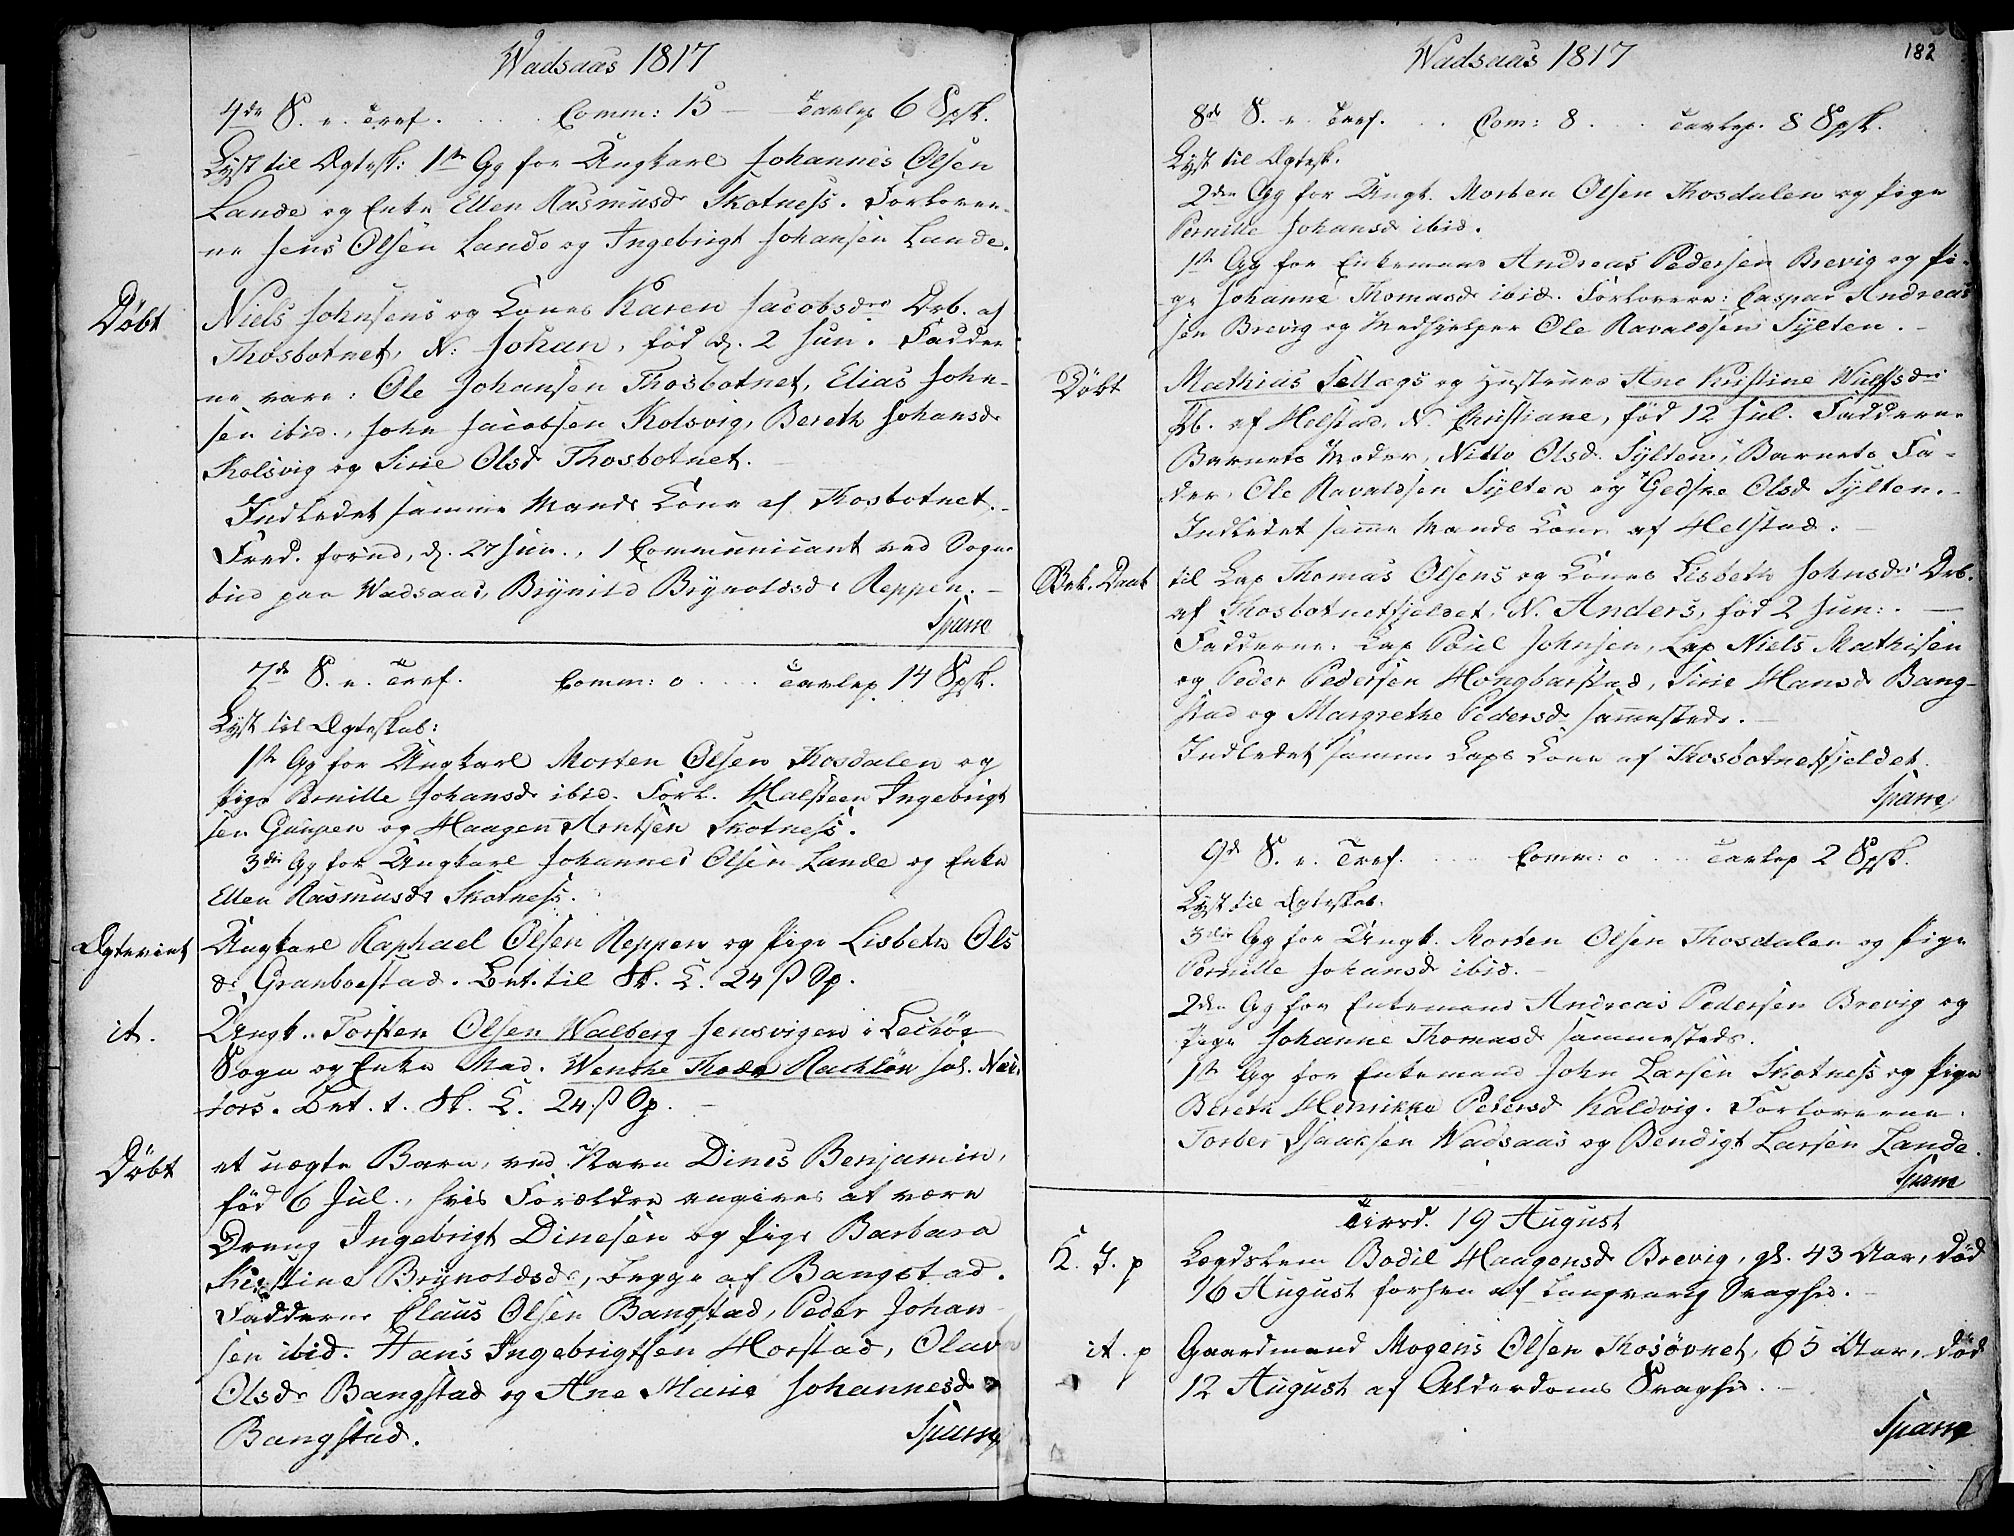 Wadsaas 1817
4de S. e. Tref. . . . Comm: 15 — Tavlep 6 Spsk.
Lyst til Ægtesk: 1ste Gg for Ungkarl Johannes Olsen
Lande og Enke Ellen Rasmusdr Skotness. Forlover-
ne Jens Olsen Lande og Ingebrigt Johansen Lande.
Døbt
Niels Johnsens og Kones Karen Jacobsdrs Drb. af
Thosbotnet, N: Johan, fød d. 2 Jun. Fadder
ne vare: Ole Johansen Thosbotnet, Elias John-
sen ibid., John Jacobsen Kolsvig, Bereth Johansdr
Kolsvig og Sirie Olsdr Thosbotnet.
Indledet samme Mands Kone af Thosbotnet.
Fred. forud, d. 27 Jun., 1 Communicant ved Sogne
bud paa Wadsaas, Brynild Brynoldsdr Reppen.
Sparre
7de S. e. Tref. Comm: 0 . . . Tavlep 14 Spsk.
Lyst til Ægteskab:
1ste Gg for Ungkarl Morten Olsen Thosdalen og
Pige Pernille Johansdr ibid. Forl. Halsteen Ingebrigt
sen Gunpen og Haagen Arntsen Skotness.
3die Gg for Ungkarl Johannes Olsen Lande og Enke
Ellen Rasmusdr Skotness.
Ægteviet
Ungkarl Raphael Olsen Reppen og Pige Lisbeth Ols
dr Granboestad. Bet. til Sk. K. 24 ß Sp.
it.
Ungk. Torsten Olsen Walberg Jensvigen i Lechøe
Sogn og Enke Mad. Wenche Thode Rachløw sal. Næs
fors. Bet. t. Sk. K. 24 ß Sp.
Døbt
et uægte Barn, ved Navn Dines Benjamin,
fød 6 Jul., hvis Forældre angives at være
Dreng Ingebrigt Dinesen og Pige Barbara
Kirstine Brynoldsdr, begge af Bangstad.
Fadderne Claus Olsen Bangstad, Peder Johan
sen ibid. Hans Ingebrigtsen Horstad, Olava
Olsdr Bangstad og Ane Marie Johannesdr
Bangstad.
Sparre
Wadsaas 1817
182
8de S. e. Tref. . . Com: 8 . . . Tavlep. 8 Spsk.
Lyst til Ægtesk.
2den Gg for Ungk. Morten Olsen Thosdalen og Pige
Pernille Johansdr ibid.
1ste Gg for Enkemand Andreas Pedersen Brevig og Pi-
ge Johanne Thomasdr ibid. Forlovere: Caspar Andreas
sen Brevig og Medhjelper Ole Ravaldsen Sylten.
Døbt
Mathias Sellægs og Hustrues Ane Kristine Wulfsdrs
Pb. af Helstad, N. Christiane, fød 12 Jul. Fadderne
Barnets Moder, Nille Olsdr Sylten, Barnets Fa-
der, Ole Ravaldsen Sylten og Gedske Olsdr Sylten.
Indledet samme Mands Kone af Helstad.
Bek. Daab
til Lap Thomas Olsens og Kones Lisbeth Johnsdrs Drb.
af Thosbotnetfjeldet, N. Anders, fød 2 Jun:.
Fadderne: Lap Poul Johnsen, Lap Niels Mathisen
og Peder Pedersen Hongbarstad, Sirie Hansdr Bang-
stad og Margrethe Pedersdr sammesteds.
Indledet samme Laps Kone af Thosbotnetfjeldet.
Sparre
9de S. e. Tref. . . . Comm: 0 . . . Tavlep 2 Spsk.
Lyst til Ægteskab.
3die Gg for Ungk. Morten Olsen Thosdalen og Pige
Pernille Johansdr ibid.
2den Gg for Enkemand Andreas Pedersen Brevig og
Pige Johanne Thomasdr sammesteds.
1ste Gg for Enkemand John Larsen Skotness og Pige
Bereth Henrikka Petersdr Kaldvig. Forloverne
Torber Isaaksen Wadsaas og Bendigt Larsen Lande.
Sparre
Tirsd. 19 August
K. J. p
Lægdslem Bodil Haagensdr Brevig, gl. 43 Aar, død
16 August forhen af langvarig Svaghed.
it. p
Gaardmand Mogens Olsen Thosøvnet, 65 Aar, død
12 August af Alderdoms Svaghed.
Sparre